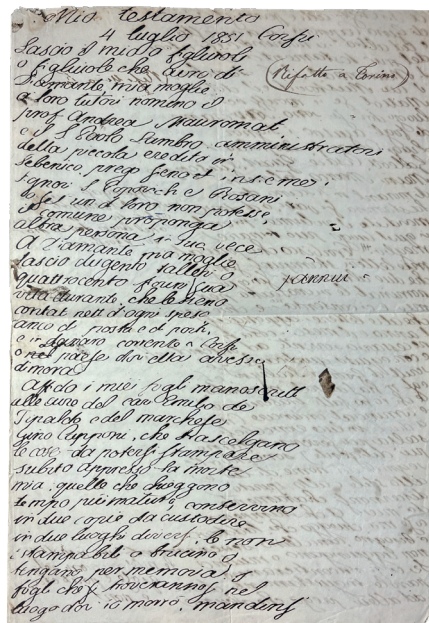 Mio testamento
4 luglio 1851 Corfu
Lascio il mio a figliuoli
o figliuole che avrò di
(Rifatto a Torino)
Diamante mia moglie
a loro tutori nomino il
prof Andrea Mauromat
e il S Paolo amministratori
della piccola eredità in
Sebenico, prego sieno insieme i
signori S Popovich e Rosani
Se un d loro non potesse,
il Comune proponga
altra persona in sua vece
A Diamante mia moglie
lascio dugento talleri o
quattrocento fiorini sua
annui
vita durante, che le sieno
contati netti d'ogni spesa
anco di posta e di porti,
e si paghino a Corfu
o nel paese dov'ella avesse
dimora
Affido i miei fogli manoscritti
alle cure del cav Emilio de
Tipaldo e del marchese
Gino Capponi, che trascelgano
le cose da potersi stampare
subito appresso la morte
mia. quelle che chieggono
tempo più maturo, conservino
in due copie da custodire
in due luoghi diversi, le non
stampabili o brucino o
tengano per memoria. I
fogli che si troveranno nel
luogo dov'io morrò, mandinsi